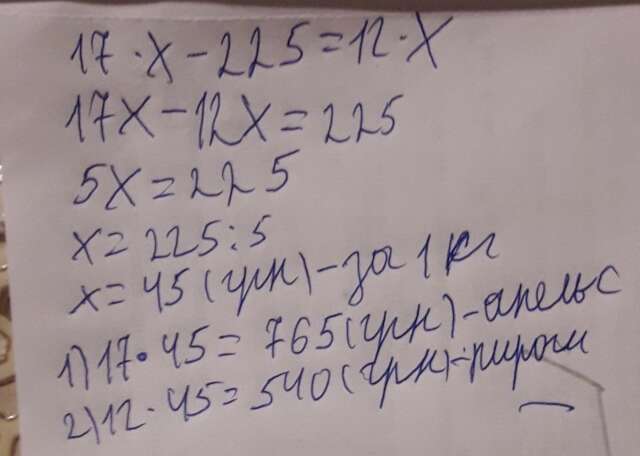 17·x-225=12·x
17x-12x=225
5x=225
x=225:5
x=45(грн)-за 1 кг
1)17·45=765(грн)-апельс
2)12·45=540(грн)-